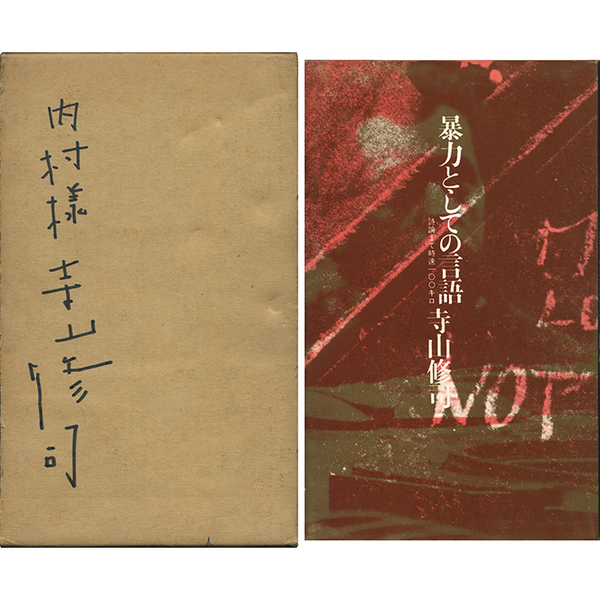 内村様
寺山修司
暴力としての言語
詩論まで時速一〇〇キロ
寺山修司
NOT